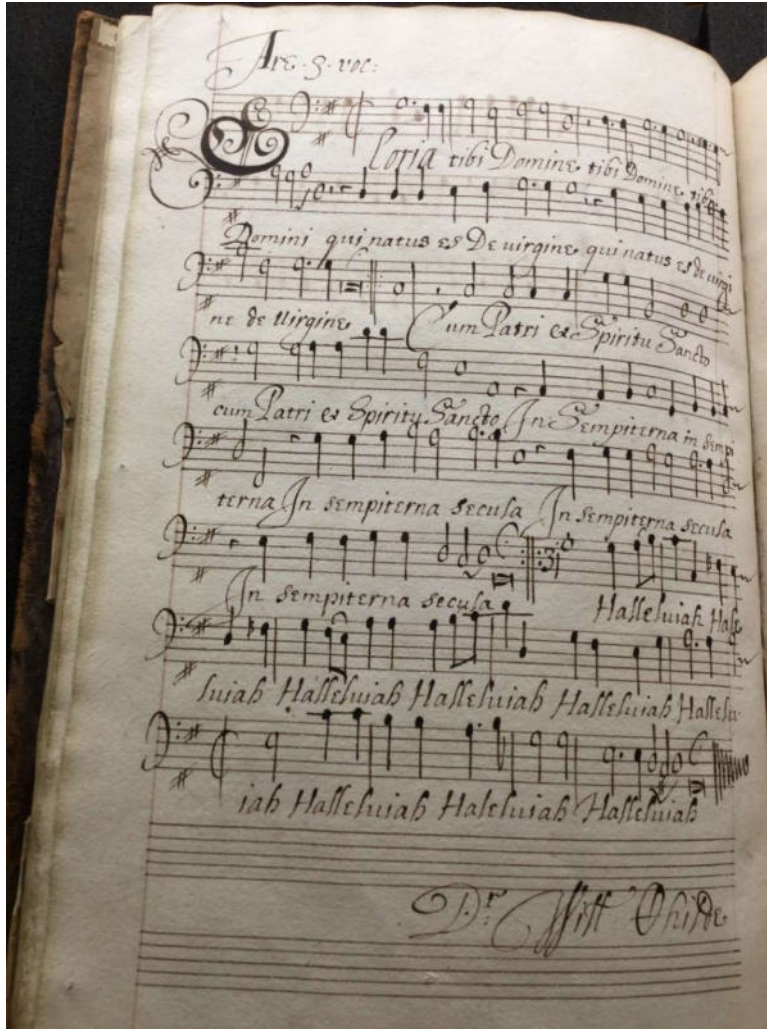 Are · 3 · voc:
Gloria tibi Domine tibi Domine tibi
Domini qui natus es De virgine qui natus es de virgi
ne de Uirgine Cum Patri et Spiritu Sancto
cum Patri et Spiritu Sancto In Sempiterna in sempi
terna In sempiterna secula In sempiterna secula
In sempiterna secula Halleluiah Hale
luiah Halleluiah Halleluiah Halleluiah Hallelu
iah Halleluiah Haleluiah Halleluiah
Dr: Will Childe